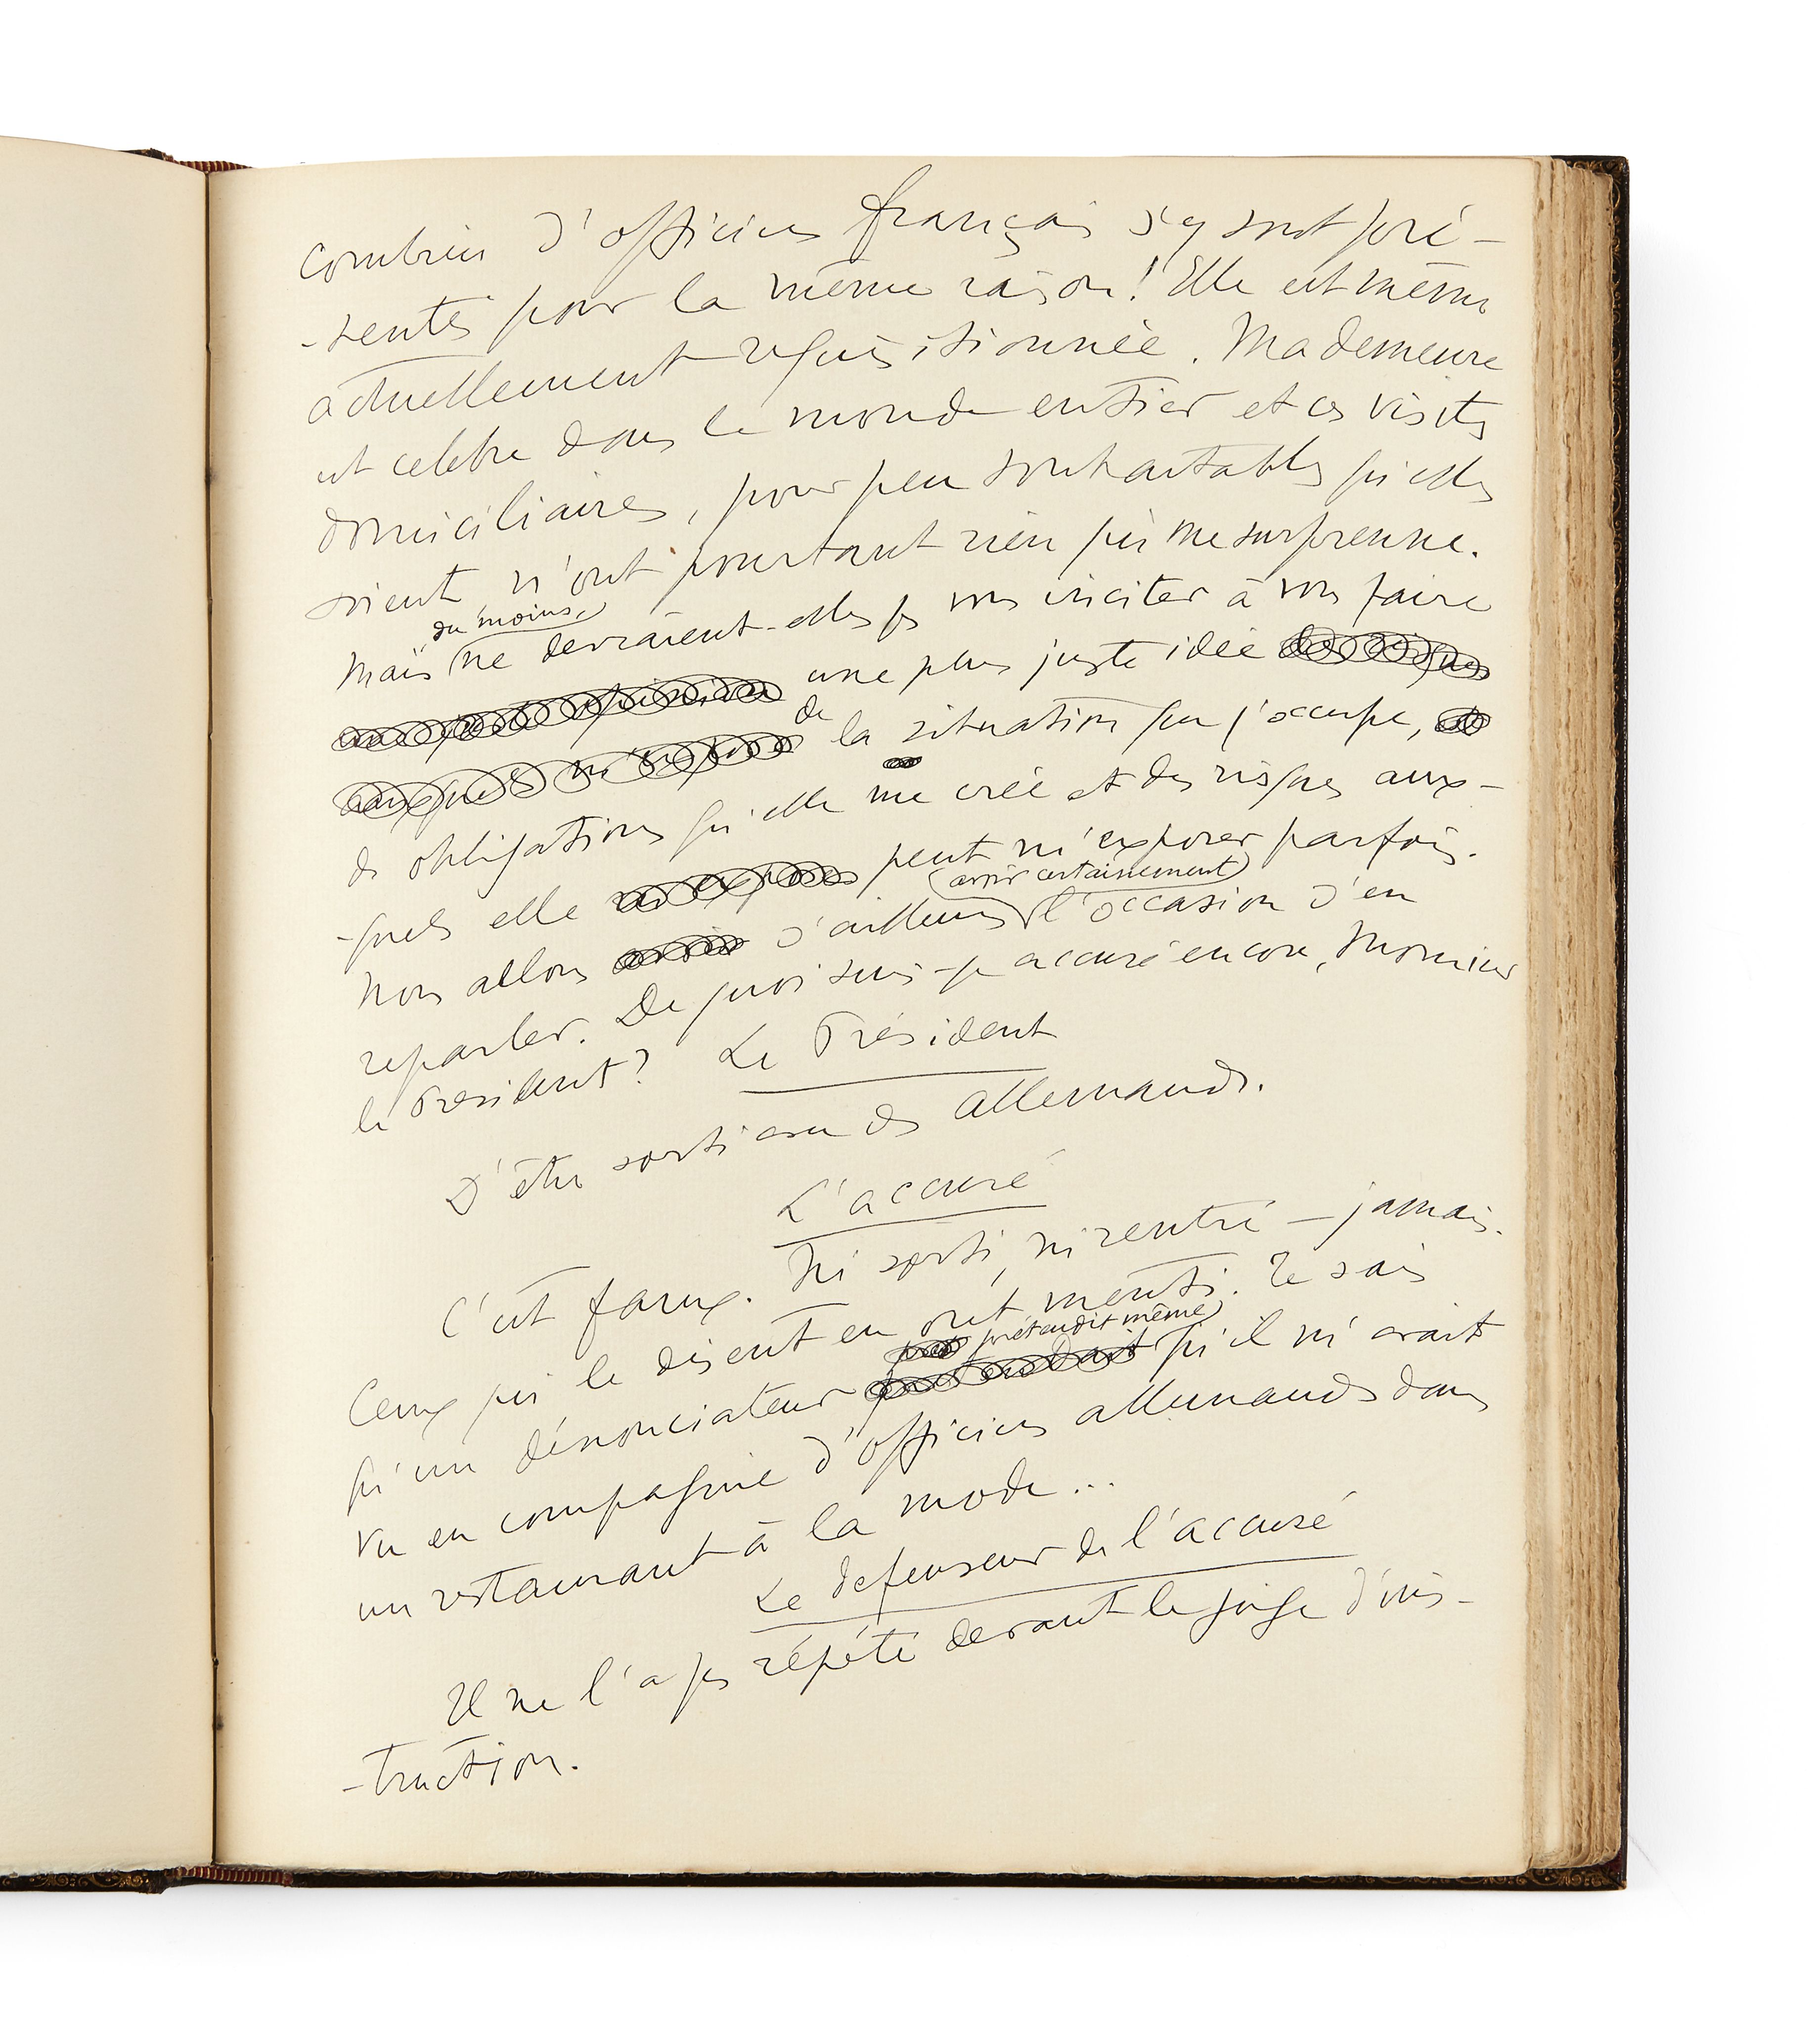 combien d'officiers français s'y sont pré-
-sentés pour la même raison! Elle est même
actuellement réquisitionnée. Ma demeure
est celebre dans le monde entier et ces visites
domiciliaires, pour peu souhaitables qu'elles
soient n'ont pourtant rien qui me surprenne.
du moins
Mais ne devraient-elles pas vous inciter à vous faire
une plus juste idée
de la situation que j'occupe,
des obligations qu'elle me crée et des risques aux-
-quels elle peut m'exposer parfois.
avoir certainement
Nous allons d'ailleurs l'occasion d'en
reparler. De quoi suis-je accusé encore, Monsieur
le Président?
Le Président
D'être sorti avec des allemands.
L'accusé
C'est faux. Ni sorti, ni rentré — jamais.
Ceux qui le disent en ont menti. Je sais
prétendit même
qu'un dénonciateur qu'il m'avait
vu en compagnie d'officiers allemands dans
un restaurant à la mode...
Le defenseur de l'accusé
Il ne l'a pas répété devant le juge d'ins-
-truction.